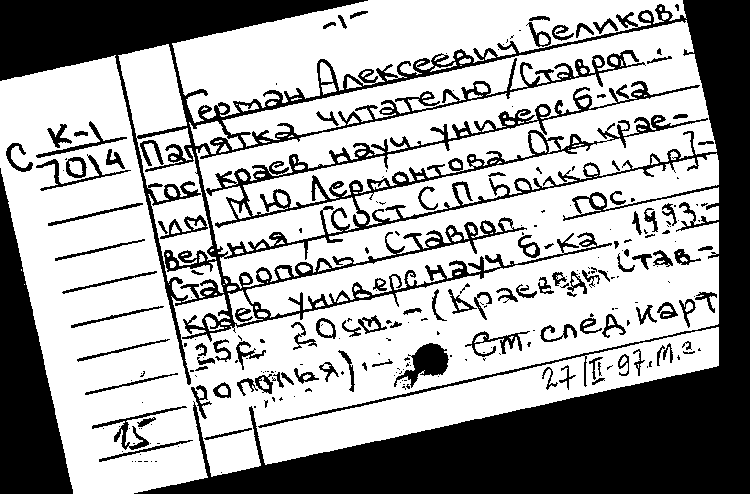 -1-
Герман Алексеевич Беликов:
Памятка читателю / Ставроп.
гос. краев. науч. универс. б-ка
им. М.Ю. Лермонтова. Отд. крае-
ведения; [Сост. С.П. Бойко и др.]-
Ставрополь: Ставроп. гос.
краев. универс. науч. б-ка, 1993.-
25с.; 20см.-(Краеведы Став-
рополья).-
См. след. карт
27/II-97.М.г.
С К-1
7014
15